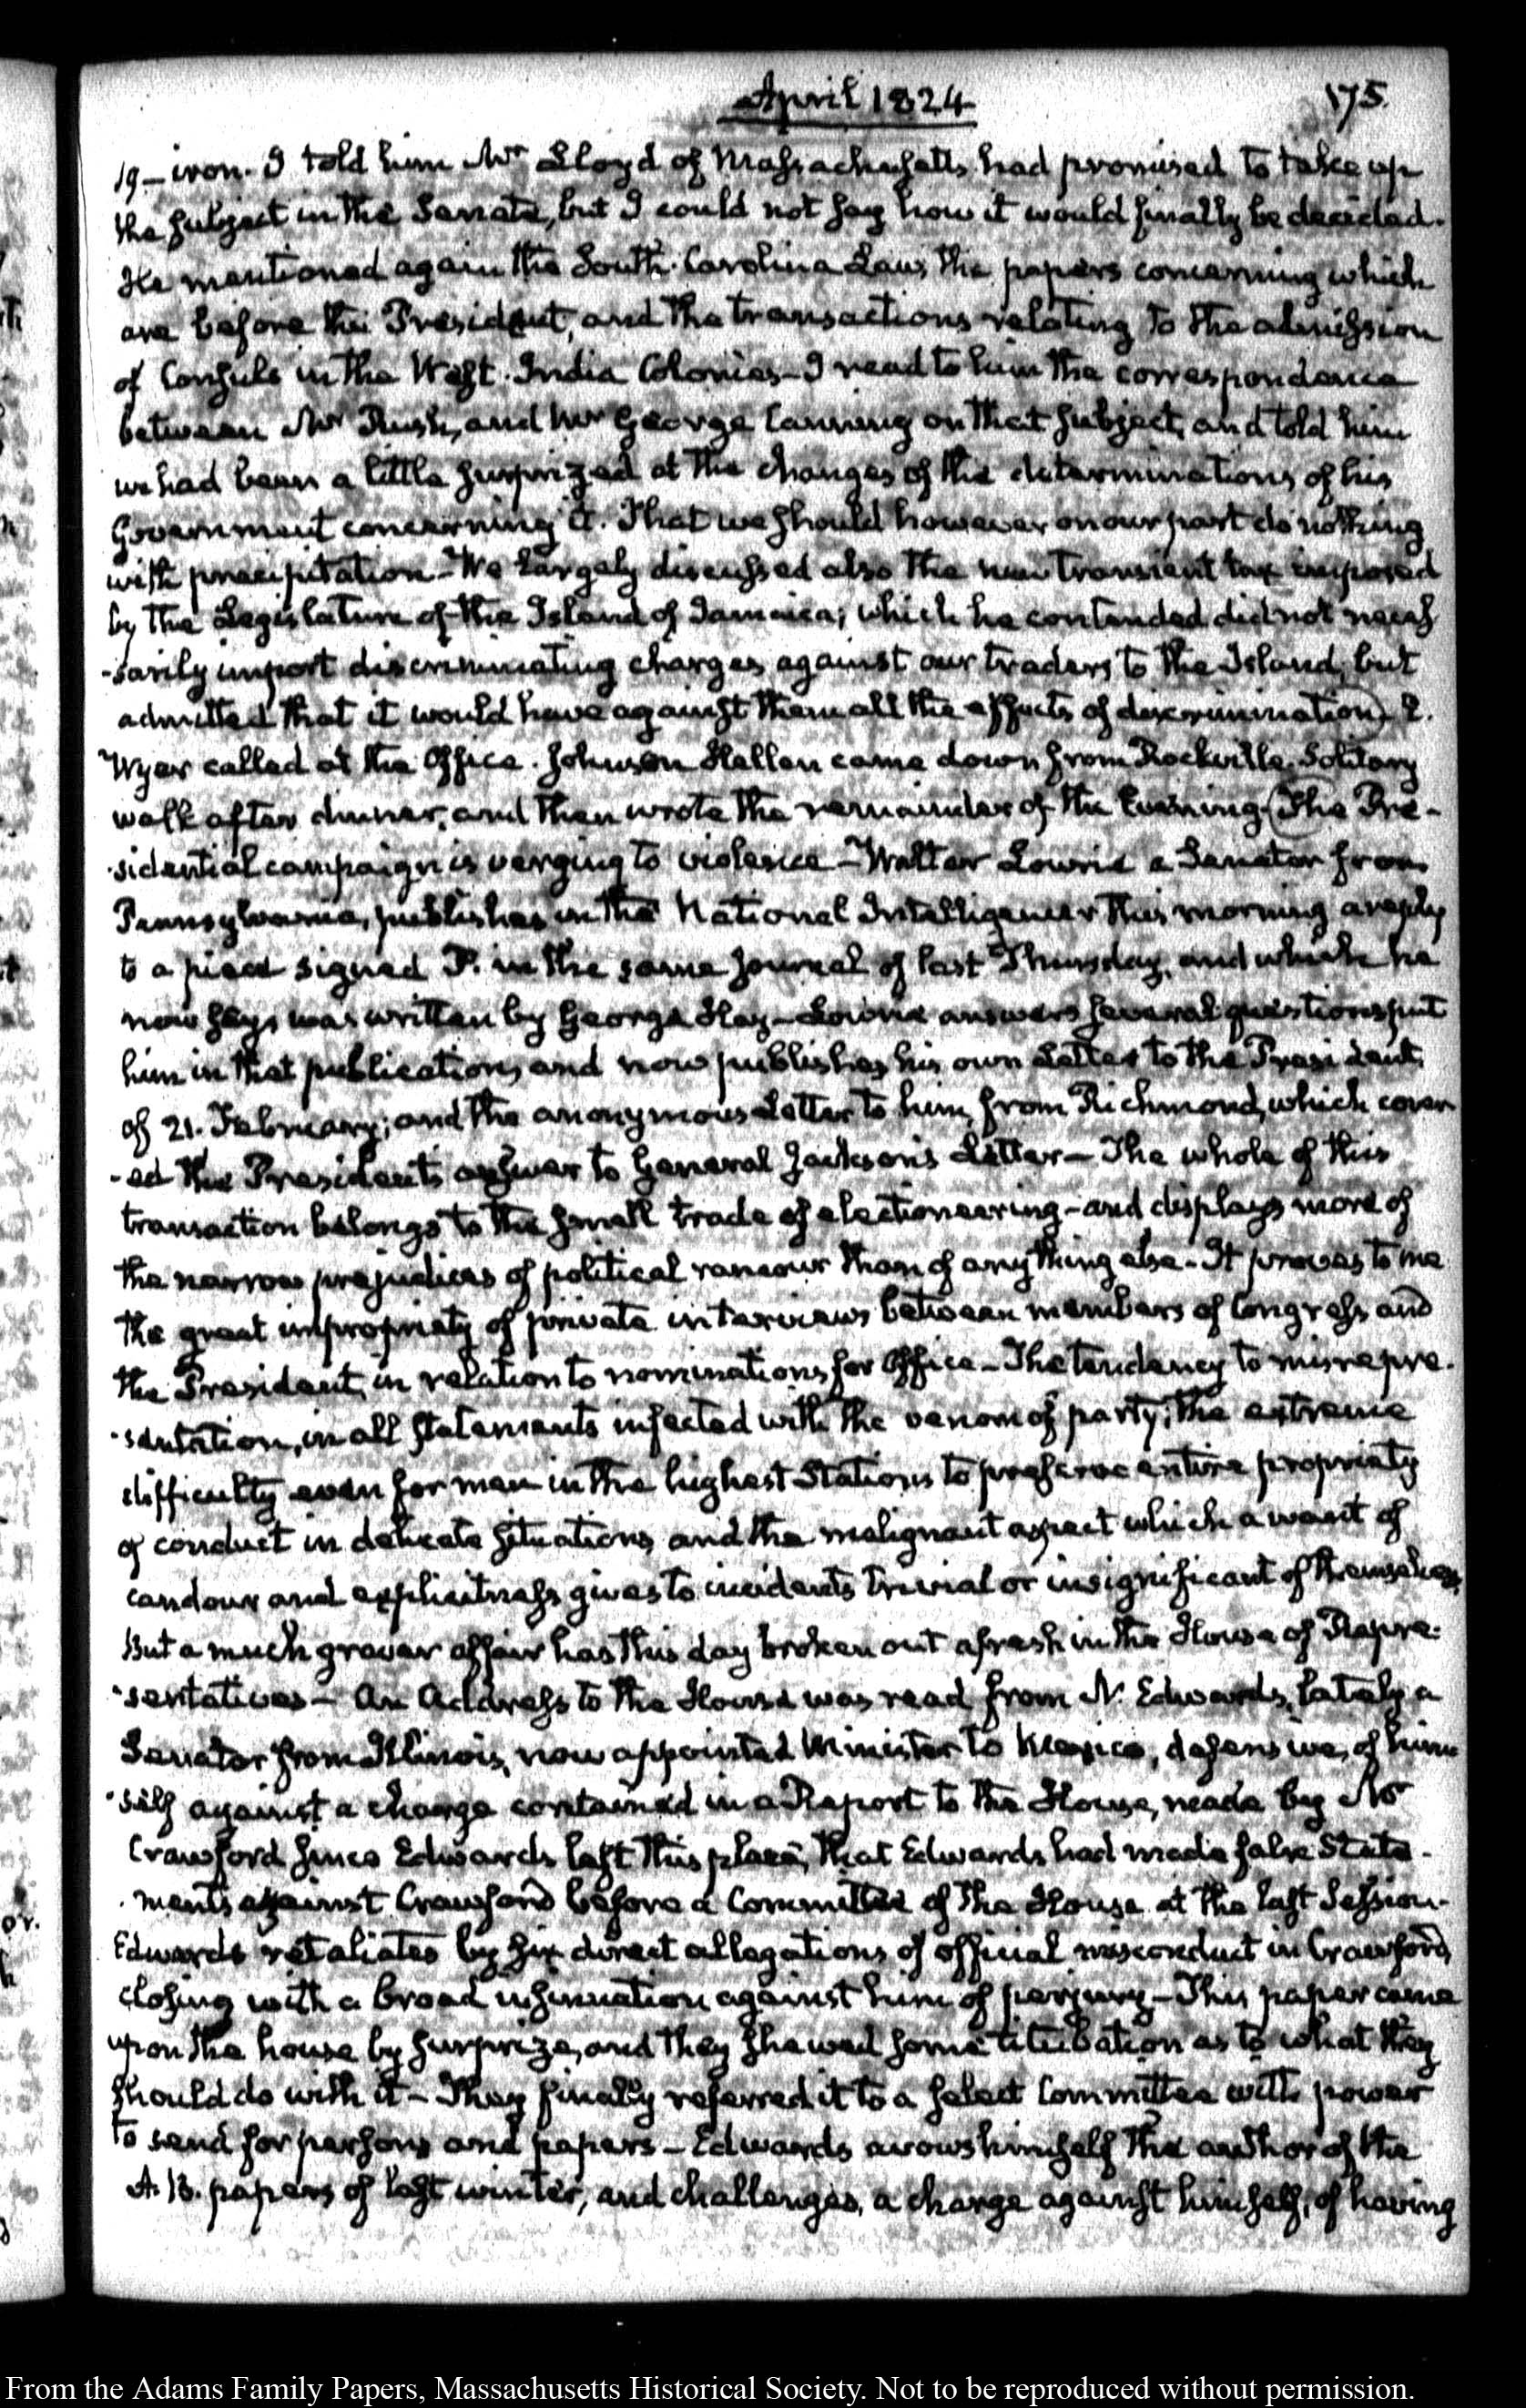 April 1824
175.
19 – iron. I told him Mr Lloyd of Massachusetts had promised to take up
the subject in the Senate, but I could not say how it would finally be decided.
He mentioned again the South-Carolina Law, the papers concerning which
are before the President, and the transactions relating to the admission
of Consuls in the West-India Colonies – I read to him the correspondence
between Mr Rush, and Mr George Canning on that subject, and told him
we had been a little surprized at the changes of the determinations of his
Government concerning it. That we should however on our part do nothing
with precipitation – We largely discussed also the new transient tax imposed
by the Legislature of the Island of Jamaica; which he contended did not neces
-sarily import discriminating charges against our traders to the Island, but
admitted that it would have against them all the effects of discrimination) E.
Wyer called at the Office. Johnson Hellen came down from Rockville. Solitary
walk after dinner, and then wrote the remainder of the Evening (The Pre-
-sidential campaign is verging to violence – Walter Lowrie a Senator from
Pennsylvania, publishes in the National Intelligencer this morning a reply
to a piece signed P. in the same Journal of last Thursday, and which he
now says was written by George Hay – Lowrie answers several questions put
him in that publication, and now publishes his own Letter to the President,
of 21. February; and the anonymous Letter to him, from Richmond, which cover
-ed the President's answer to General Jackson's Letter – The whole of this
transaction belongs to the small trade of electioneering – and displays more of
the narrow prejudices of political rancour than of any thing else – It proves to me
the great impropriety of private interviews between members of Congress and
the President, in relation to nominations for Office – The tendency to misrepre-
-sentation, in all statements infected with the venom of party; the extreme
difficulty even for men in the highest Stations to preserve entire propriety
of conduct in delicate situations, and the malignant aspect which a want of
candour and explicitness gives to incidents trivial or insignificant of themselves.
But a much graver affair has this day broken out afresh in the House of Repre-
-sentatives – An Address to the House was read from N. Edwards, lately a
Senator from Illinois, now appointed Minister to Mexico, defensive, of him
-self against a charge contained in a Report to the House, made by Mr
Crawford since Edwards left this place, that Edwards had made false State-
-ments against Crawford before a Committee of the House at the last Session.
Edwards retaliates by six direct allegations of official misconduct in Crawford,
closing with a broad insinuation against him of perjury – This paper came
upon the house by surprize, and they shewed some titubation as to what they
should do with it – They finally referred it to a select Committee with power
to send for persons and papers – Edwards avows himself the author of the
A.B. papers of last winter, and challenges, a charge against himself, of having
or.
From the Adams Family Papers, Massachusetts Historical Society. Not to be reproduced without permission.